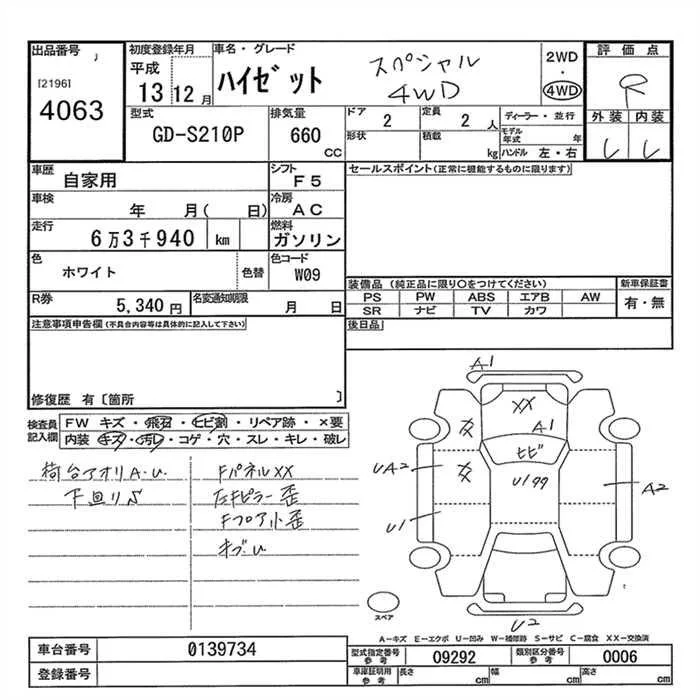 出品番号
[2196]
4063
初度登録年月
平成
13 12 月
車名・グレード
ハイゼット スペシャル
4WD
2WD
・
4WD
評価点
R
外装 内装
型式
GD-S210P
排気量
660
CC
ドア
2
定員
2 人
ディーラー・並行
形状
積載
kg
モデル年式 年
ハンドル 左・右
車歴
自家用
シフト
F5
セールスポイント(正常に機能するものに限ります)
車検
年 月( 日)
冷房
AC
走行
6万3千940 km
燃料
ガソリン
色
ホワイト
色替
色コード
W09
装備品 (純正品に限り○をつけてください)
PS PW ABS エアB AW
SR ナビ TV カワ
新車保証書
有・無
R券
5,340 円
名変通知期限
月 日
後日品
注意事項申告欄(不具合内容等は具体的に記入して下さい)
修復歴 有〔箇所 〕
検査員記入欄
FW キズ・飛石・ヒビ割・リペア跡・×要
内装・キズ・汚レ・コゲ・穴・スレ・キレ・破レ
荷台アオリA・U
下廻りS
FパネルXX
左Fピラー歪
Fフロア小歪
A1
XX
A1
ヒビ
U199
UA2
U1
A2
U2
スペア
A-キズ E-エクボ U-凹み W-補修跡 S-サビ C-腐食 XX-交換済
車台番号
0139734
登録番号
型式指定番号
参考
09292
類別区分番号
参考
0006
車庫証明用
参考
長さ cm
幅 cm
高さ cm